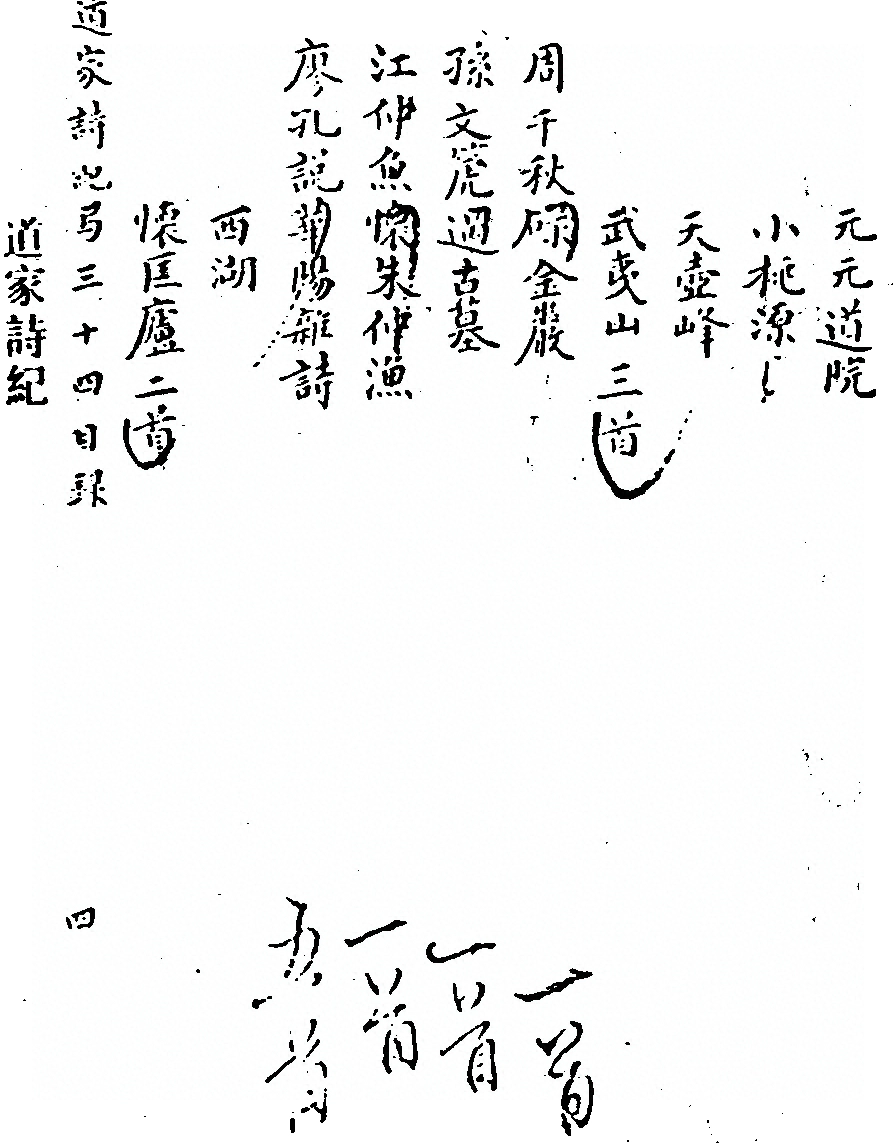 元元道院
小桃源
天壺峰
武夷山三首
周千秋 金巖 一首
孫文篪過古墓 一首
江仲魚懷朱仲漁 一首
廖孔說華陽雜詩 五首
西湖
懷匡廬二首
道家詩紀弓三十四目錄 四
道家詩紀